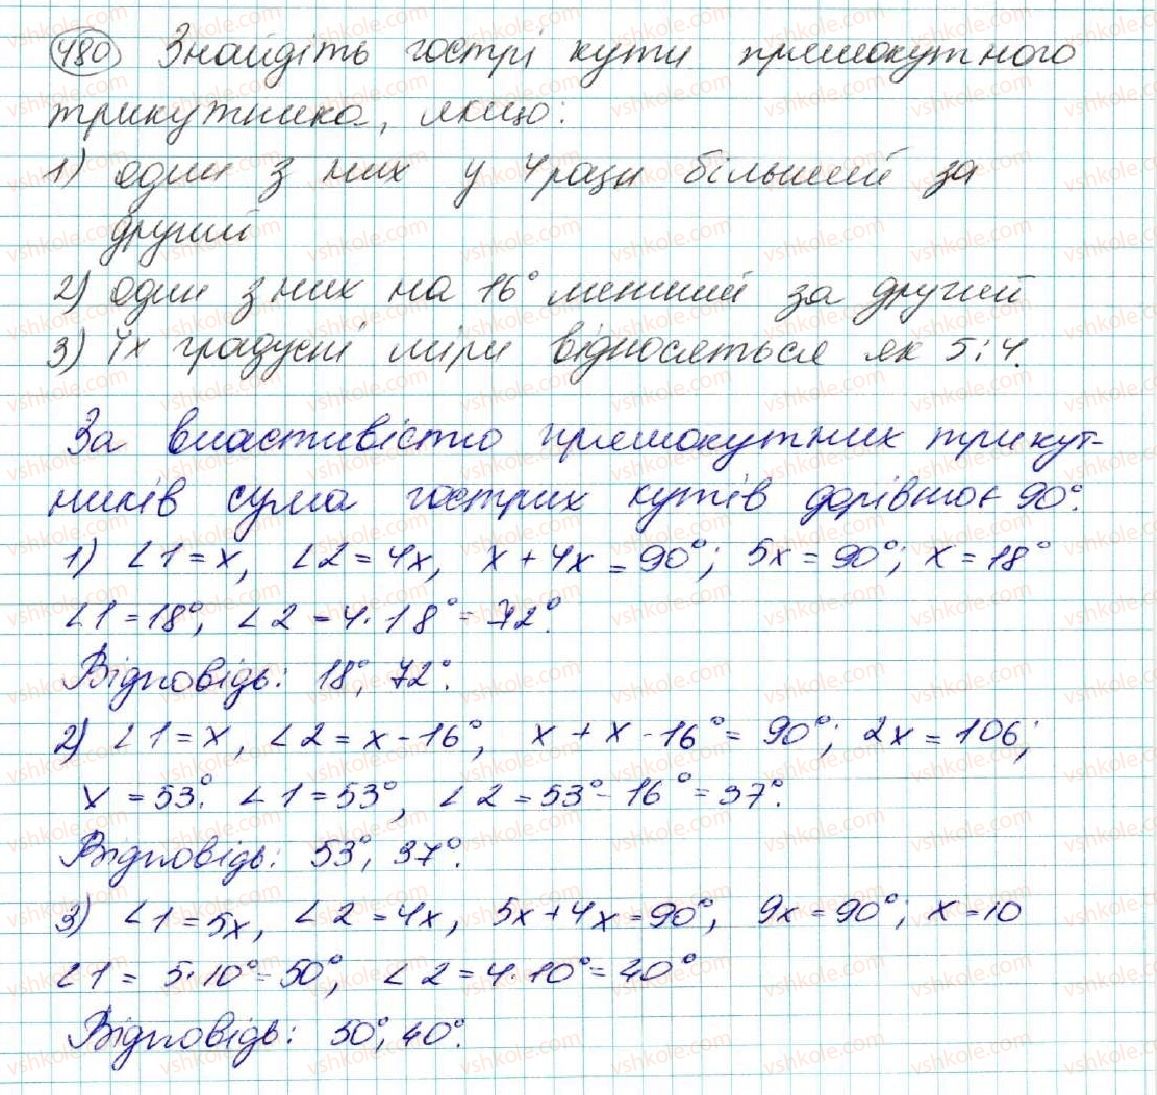 480 Знайдіть гострі кути прямокутного
трикутника, якщо:
1) один з них у 4 рази більший за
другий
2) один з них на 16° менший за другий
3) їх градусні міри відносяться як 5:4.
За властивістю прямокутних трикут-
ників сума гострих кутів дорівнює 90°.
1) ∠1=x, ∠2=4x, x+4x=90°; 5x=90°; x=18°
∠1=18°, ∠2=4·18°=72°.
Відповідь: 18°, 72°.
2) ∠1=x, ∠2=x-16°, x+x-16°=90°; 2x=106;
x=53°. ∠1=53°, ∠2=53°-16°=37°.
Відповідь: 53°, 37°.
3) ∠1=5x, ∠2=4x, 5x+4x=90°, 9x=90°; x=10
∠1=5·10°=50°, ∠2=4·10°=40°
Відповідь: 50°, 40°.
vshkole.com